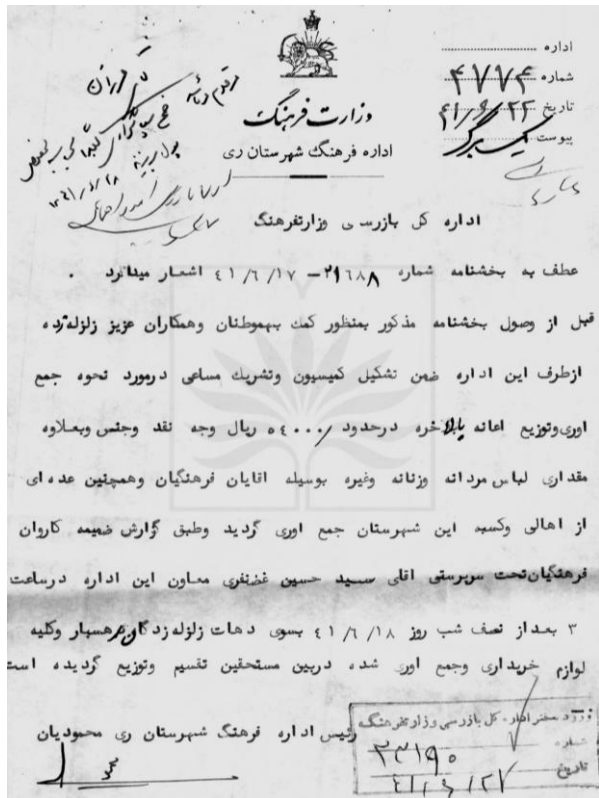 وزارت فرهنگ
اداره فرهنگ شهرستان ری
اداره
شماره ۴۷۷۴
تاریخ ۴۱/۶/۲۲
پیوست
اداره کل بازرسی وزارتفرهنگ
عطف به بخشنامه شماره ۲۱۶۸۸ – ۴۱/۶/۱۷ اشعار میدارد .
قبل از وصول بخشنامه مذکور بمنظور کمک بهموطنان وهمکاران عزیز زلزله زده
ازطرف این اداره ضمن تشکیل کمیسیون وتشریک مساعی درمورد نحوه جمع
اوری وتوزیع اعانه بالاخره درحدود ۵۴۰۰۰/ ریال وجه نقد وجنس وبعلاوه
مقداری لباس مردانه وزنانه وغیره بوسیله اقایان فرهنگیان وهمچنین عده ای
از اهالی وکسبه این شهرستان جمع اوری گردید وطبق گزارش ضمیمه کاروان
فرهنگیان تحت سرپرستی اقای سید حسین غضنفری معاون این اداره درساعت
۳ بعداز نصف شب روز ۴۱/۶/۱۸ بسوی دهات زلزله زدگان رهسپار وکلیه
لوازم خریداری وجمع اوری شده دربین مستحقین تقسیم وتوزیع گردیده است
رئیس اداره فرهنگ شهرستان ری محمودیان
ورود دفتر اداره کل بازرسی وزارتفرهنگ
شماره ۲۳۱۹۰
تاریخ ۴۱/۶/۲۷